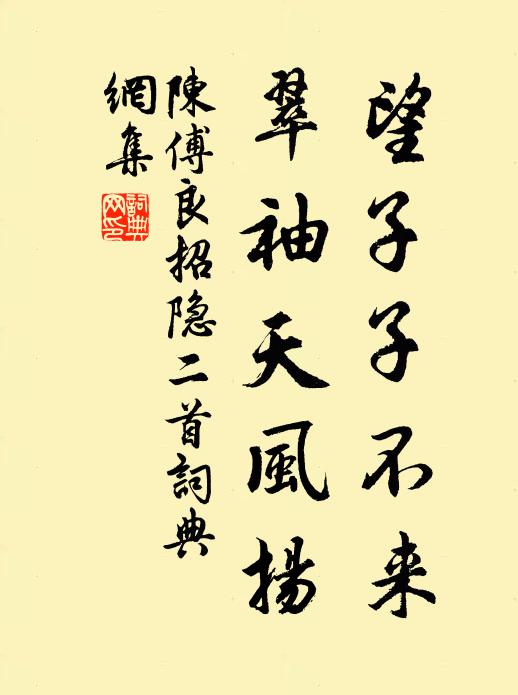 望子子不来
翠袖天風揚
陳傅良招隐二首詞典
網集
詞典
网印